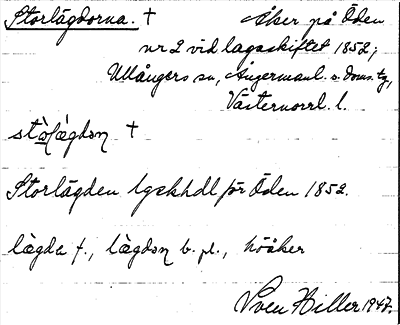 Storlägdorna. † Åker på Öden
nr 2 vid lagaskiftet 1852;
Ullångers sn, Ångermanl. s. doms. tg,
Västernorrl. l.
†
Storlägden lgskhdl för Öden 1852.
lägda f., b. pl., höåker
Sven Hiller 1947.